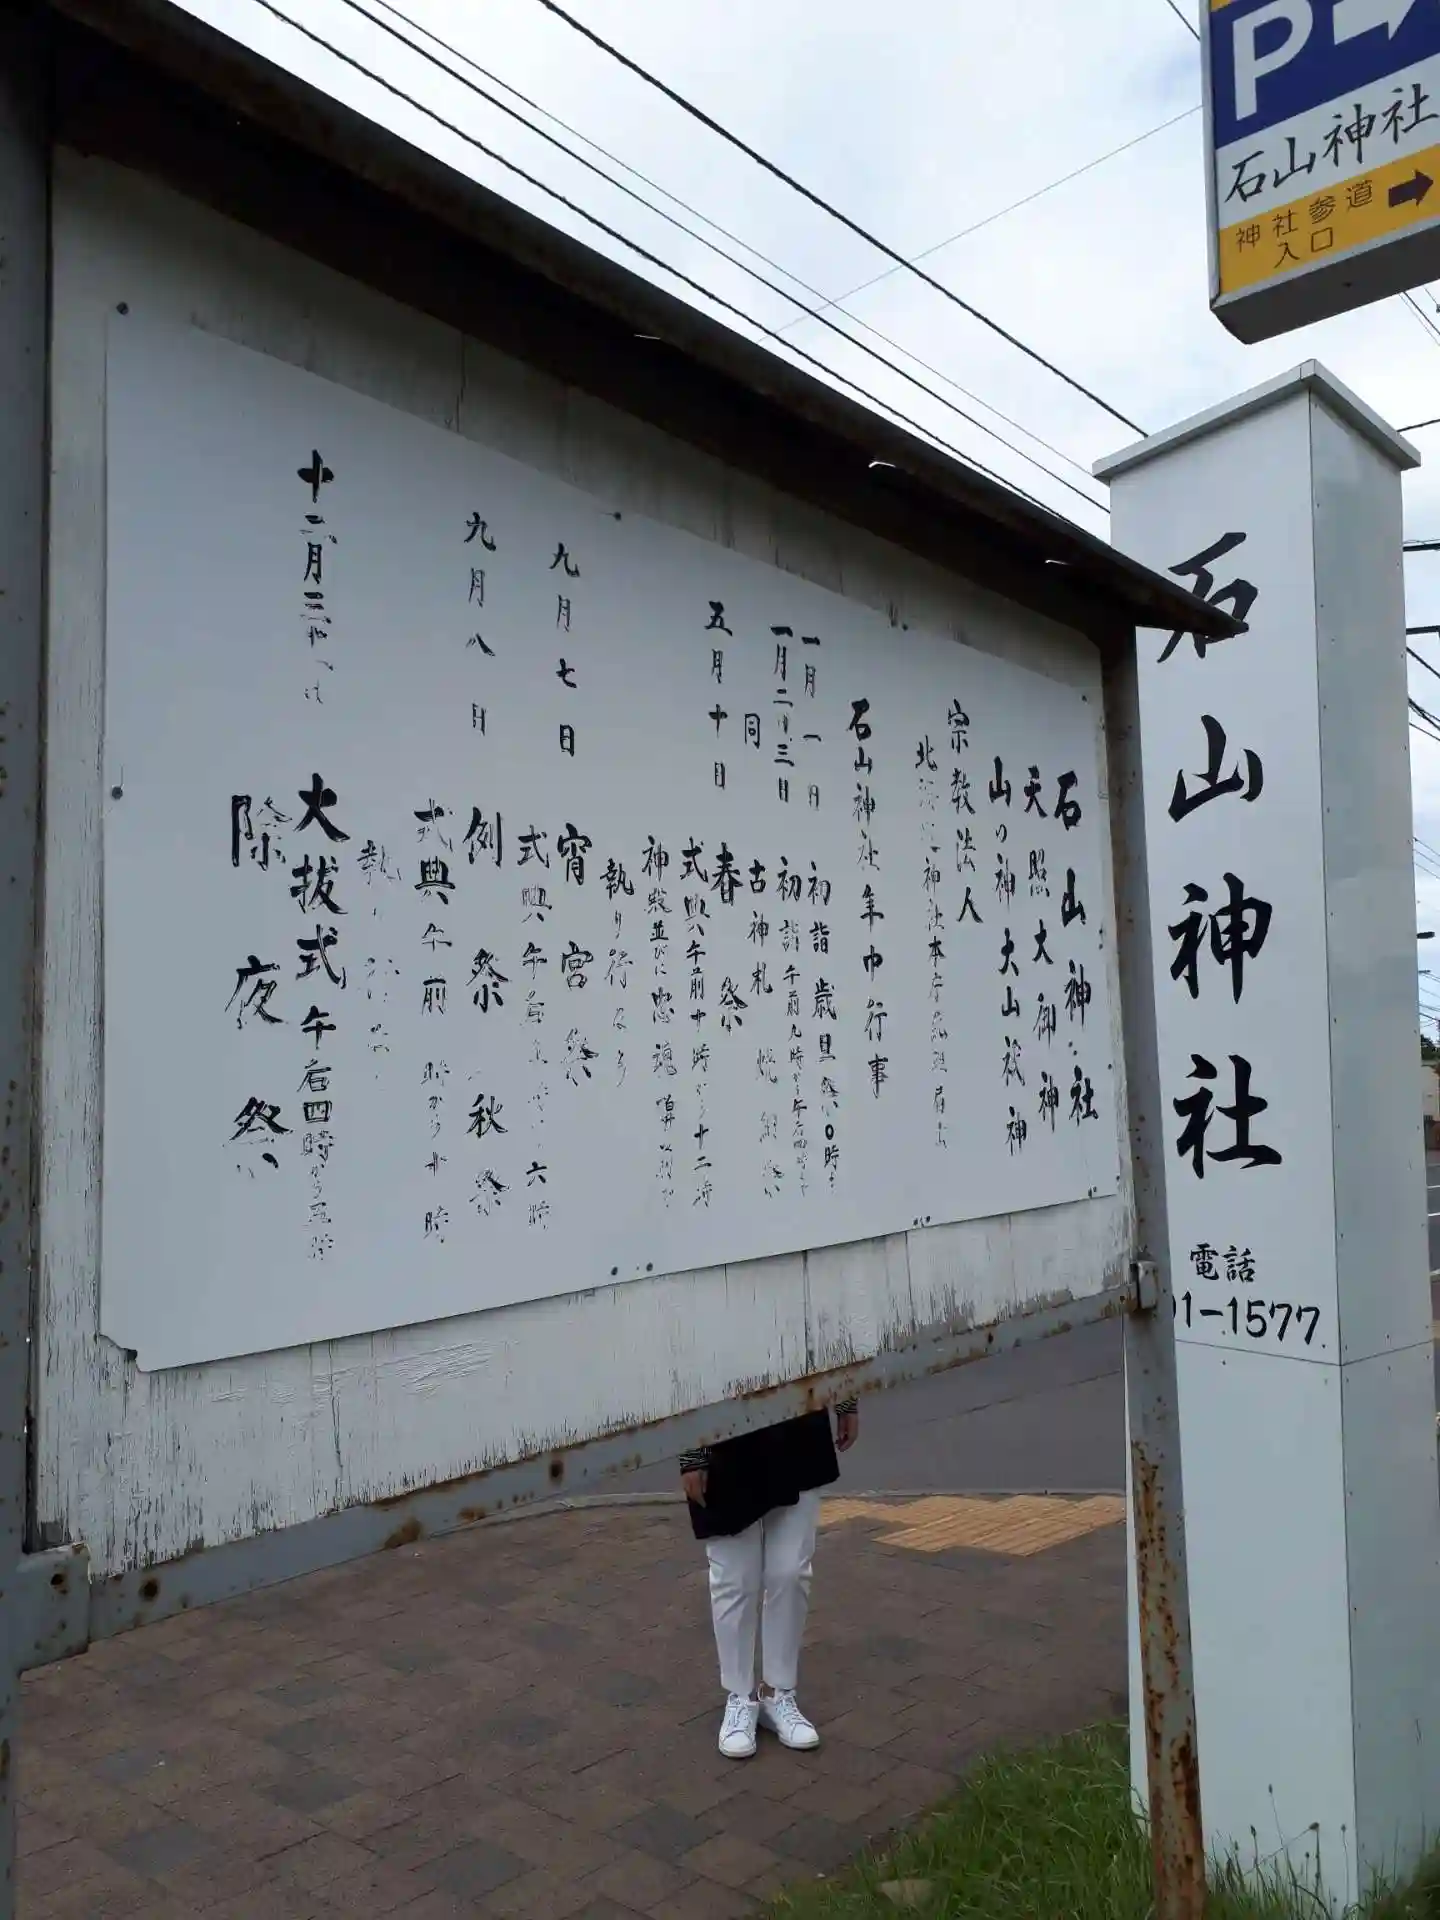 P
石山神社
神社参道
入口
石山神社
電話
1-1577
石山神社
天照大御神
山の神 大山祇神
宗教法人
神社本庁
石山神社年中行事
一月一日 初詣 歳旦祭 0時
一月二日三日 初詣 午前九時から午后
同 古神札焼納祭
五月十日 春祭
式典午前十時から十二時
神殿並びに忠魂
執り行なう
九月七日 宵宮祭
式典午 六時
九月八日 例祭 秋祭
式典午前 時から 時
執
十二月三 大拔式 午后四時から五時
除夜祭